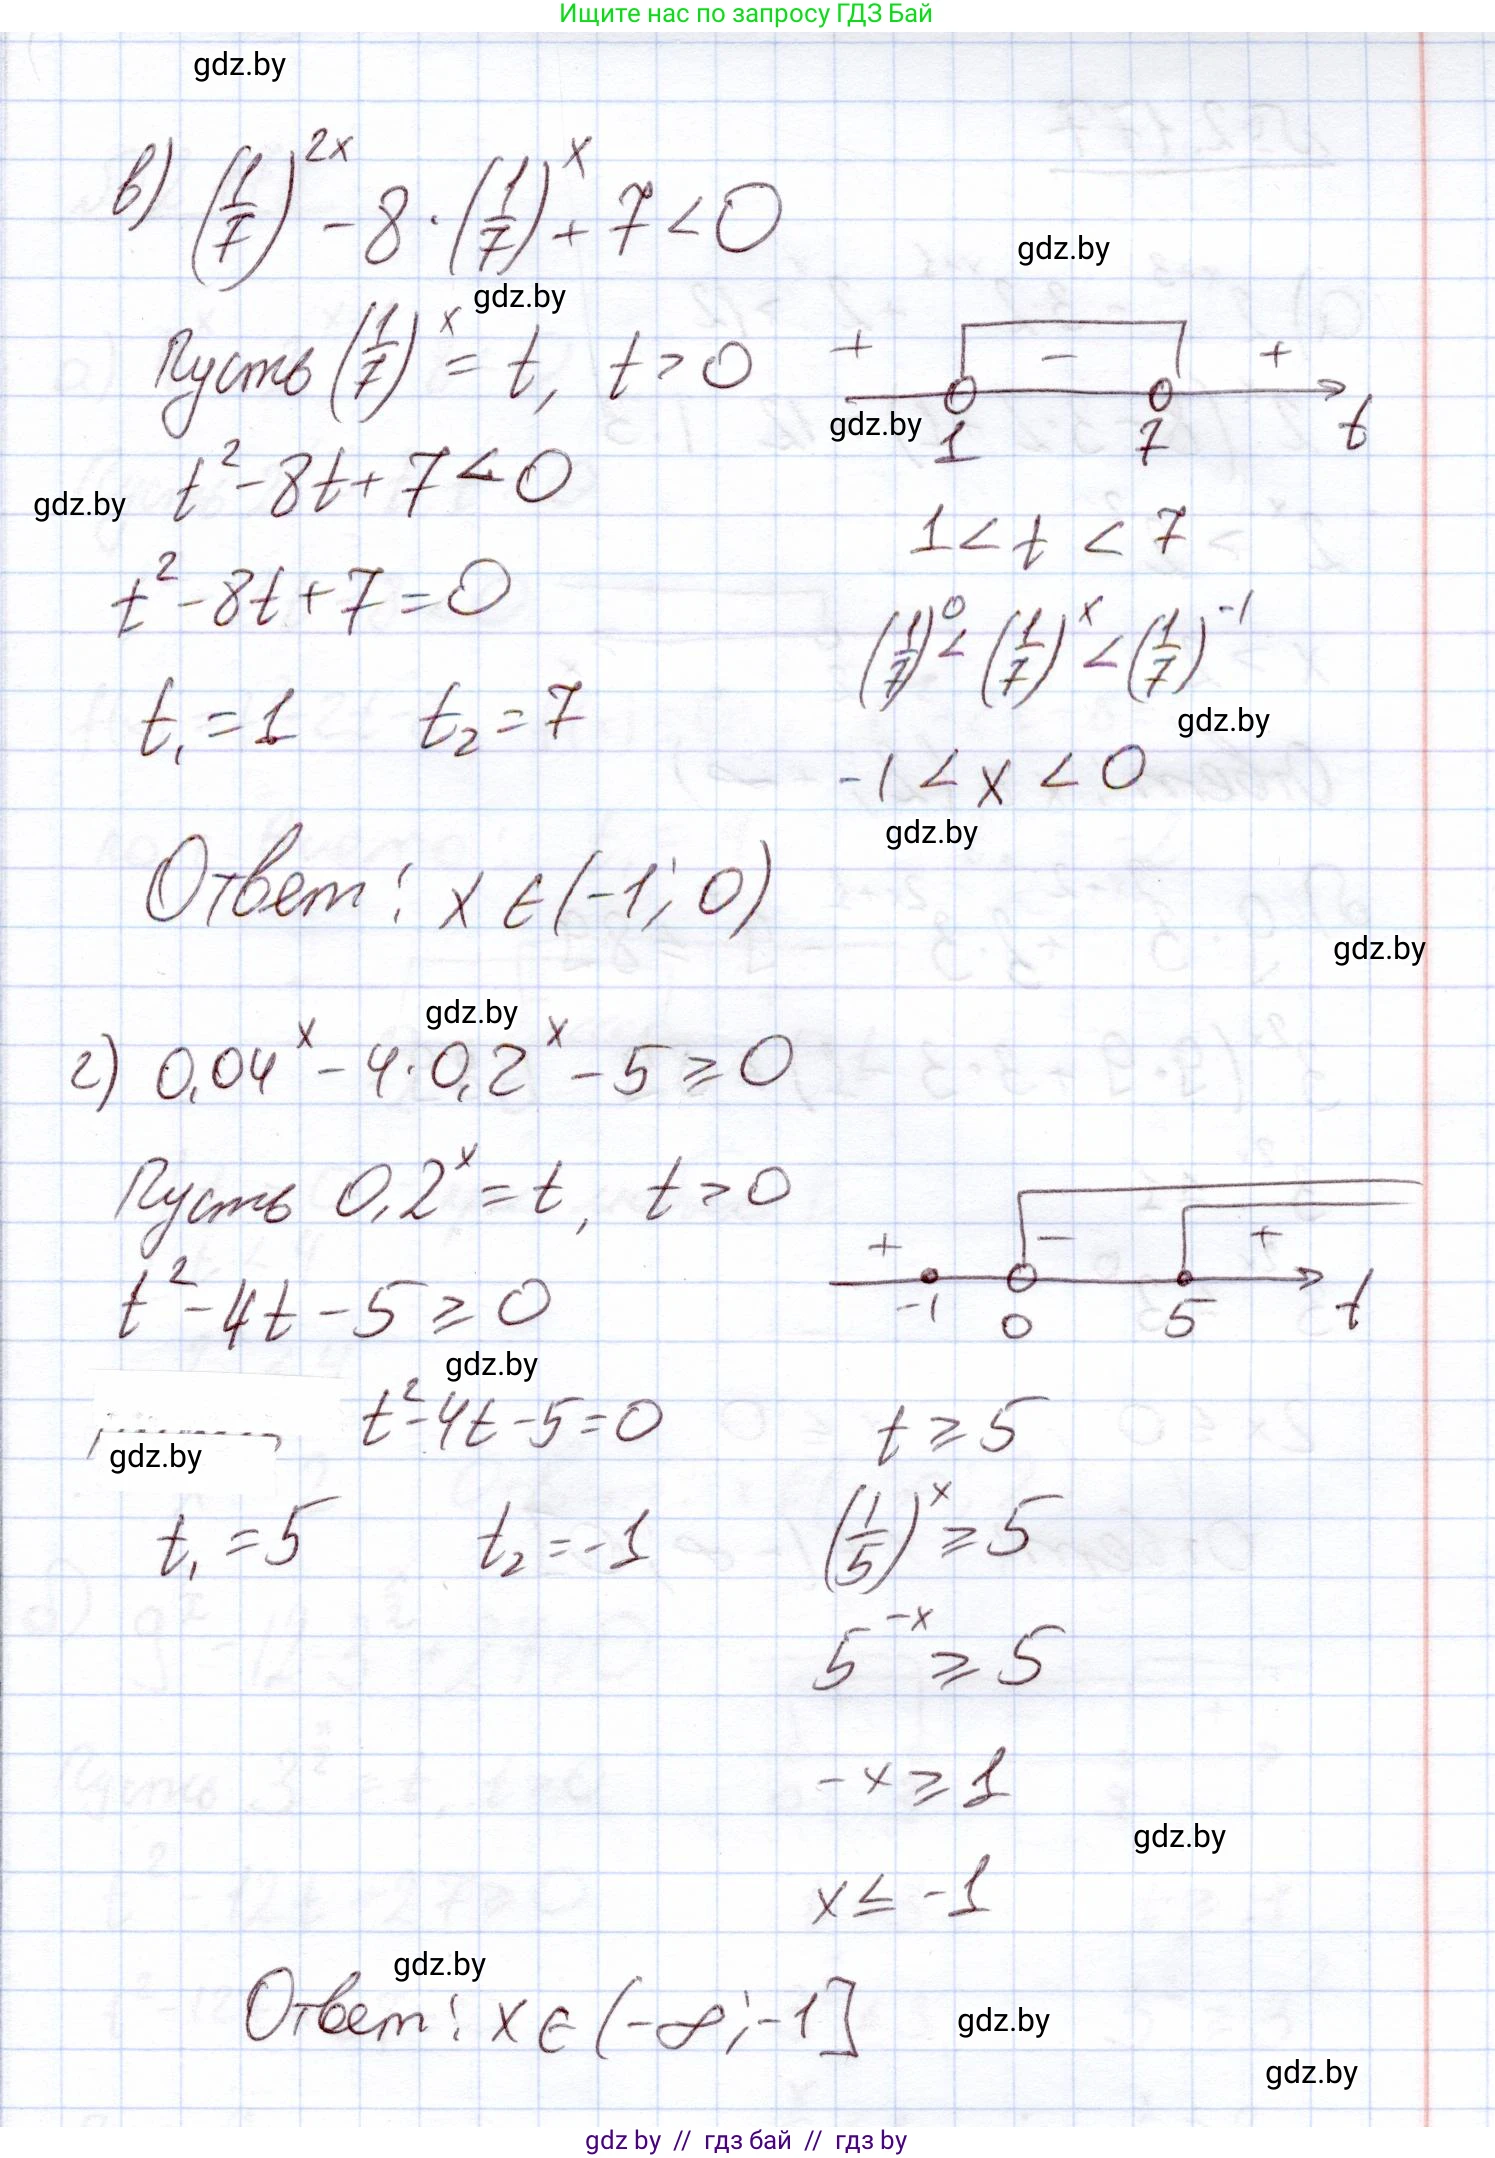 Ищите нас по запросу ГДЗ Бай
gdz.by
в) (1/7)^2x - 8 · (1/7)^x + 7 < 0
gdz.by
gdz.by
Пусть (1/7)^x = t, t > 0
+ - +
gdz.by
1 7 t
t² - 8t + 7 < 0
gdz.by
1 < t < 7
t² - 8t + 7 = 0
(1/7)^0 < (1/7)^x < (1/7)^-1
t₁ = 1 t₂ = 7
gdz.by
-1 < x < 0
gdz.by
Ответ: x ∈ (-1; 0)
gdz.by
gdz.by
г) 0,04^x - 4 · 0,2^x - 5 ⩾ 0
Пусть 0,2^x = t, t > 0
+ - +
-1 0 5 t
t² - 4t - 5 ⩾ 0
gdz.by
t² - 4t - 5 = 0
t ⩾ 5
gdz.by
t₁ = 5 t₂ = -1
(1/5)^x ⩾ 5
5^-x ⩾ 5
-x ⩾ 1
gdz.by
x ⩽ -1
gdz.by
Ответ: x ∈ (-∞; -1]
gdz.by
gdz.by
gdz by // гдз бай // гдз by